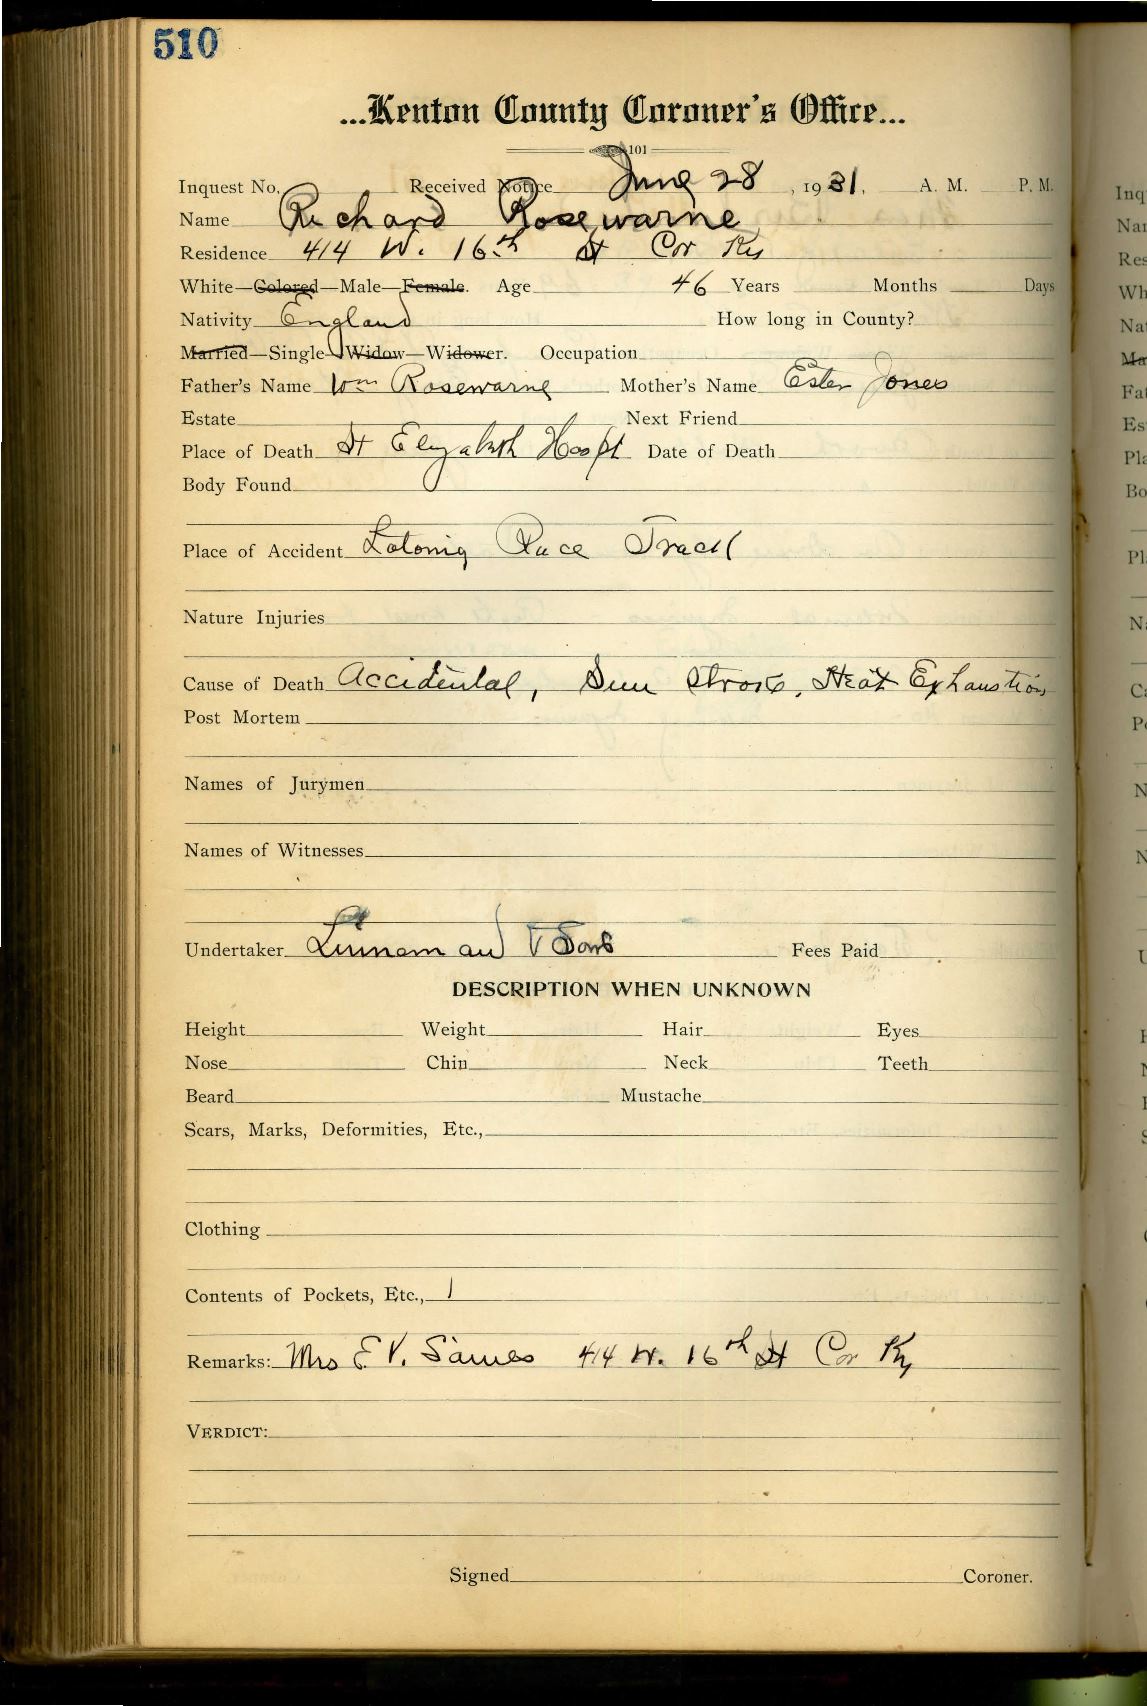 510
...Kenton County Coroner's Office...
101
Inquest No. Received Notice June 28, 1931, A. M. P. M.
Name Richard Rosewarne
Residence 414 W. 16th St Cov Ky
White—Colored—Male—Female. Age 46 Years Months Days
Nativity England How long in County?
Married—Single—Widow—Widower. Occupation
Father's Name Wm Rosewarne Mother's Name Ester Jones
Estate Next Friend
Place of Death St Elizabeth Hospt Date of Death
Body Found
Place of Accident Latonia Race Track
Nature Injuries
Cause of Death Accidental, Sun Stroke, Heat Exhaustion
Post Mortem
Names of Jurymen
Names of Witnesses
Undertaker Linneman & Sons Fees Paid
DESCRIPTION WHEN UNKNOWN
Height Weight Hair Eyes
Nose Chin Neck Teeth
Beard Mustache
Scars, Marks, Deformities, Etc.,
Clothing
Contents of Pockets, Etc.,
Remarks: Mrs E. V. 414 W. 16th St Cov Ky
VERDICT:
Signed Coroner.